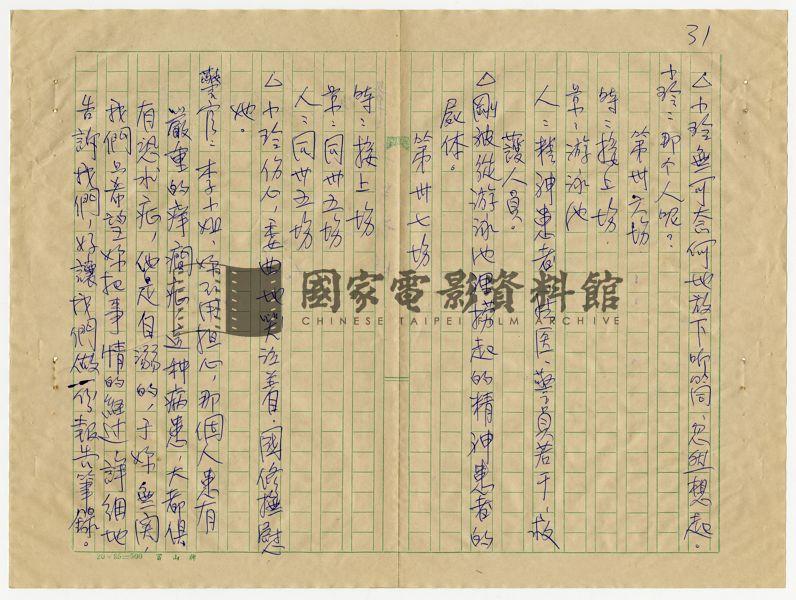 31
△小玲無可奈何地放下听筒,忽然想起。
小玲:那个人呢?
第卅六場
時:接上場.
景:游泳池
人:精神患者、医、警員若干,救
護人員。
△剛被從游泳池裡撈起的精神患者的
屍体。
第卅七場
時:接上場
景:同卅五場
人:同卅五場
△小玲伤心,委曲地哭泣着,國修撫慰
她。
警官:李小姐,妳不用担心,那個人患有
嚴重的痒癇症,這种病患,大都俱
有恐水症,他是自溺的,于妳無関,
我們只希望妳把事情的經过詳細地
告訴我們,好讓我們做一份報告筆錄。
國家電影資料館
CHINESE TAIPEI FILM ARCHIVE
20×25=500 富山牌